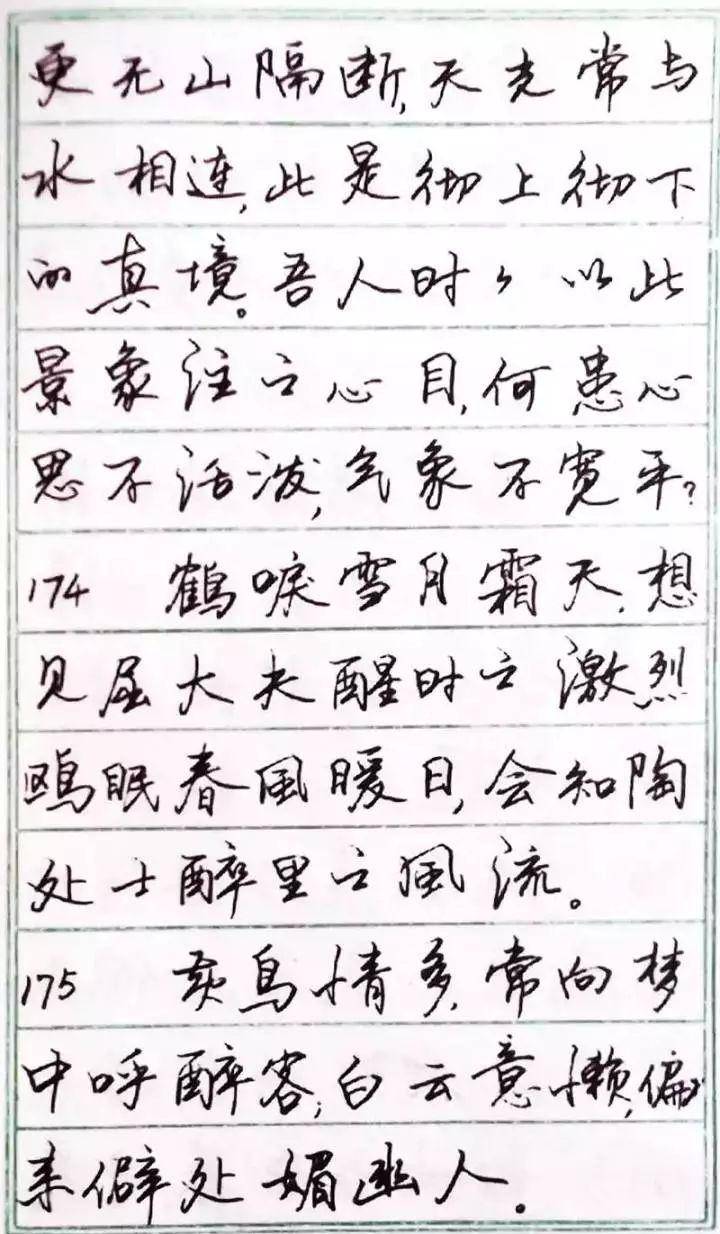 更无山隔断,天光常与
水相连,此是彻上彻下
的真境。吾人时々以此
景象注之心目,何患心
思不活泼,气象不宽平?
174 鹤唳雪月霜天.想
见屈大夫醒时之激烈
鸥眠春風暖日,会知陶
处士醉里之風流。
175 黄鸟情多.常向梦
中呼醉客;白云意懒,偏
来僻处媚幽人。